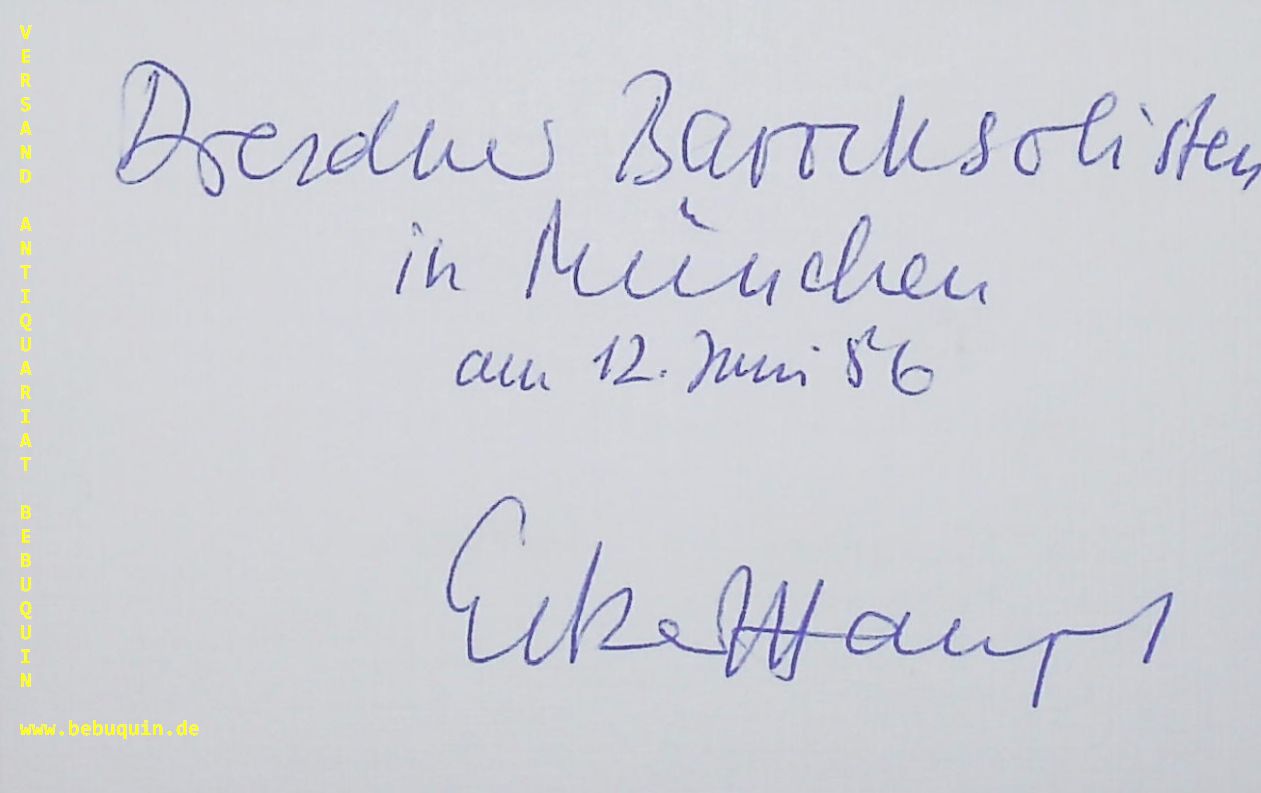 VERSAND ANTIQUARIAT BEBUQUIN
Dresdner Barocksolisten
in München
am 12. Juni 86
Eckart Haupt
www.bebuquin.de